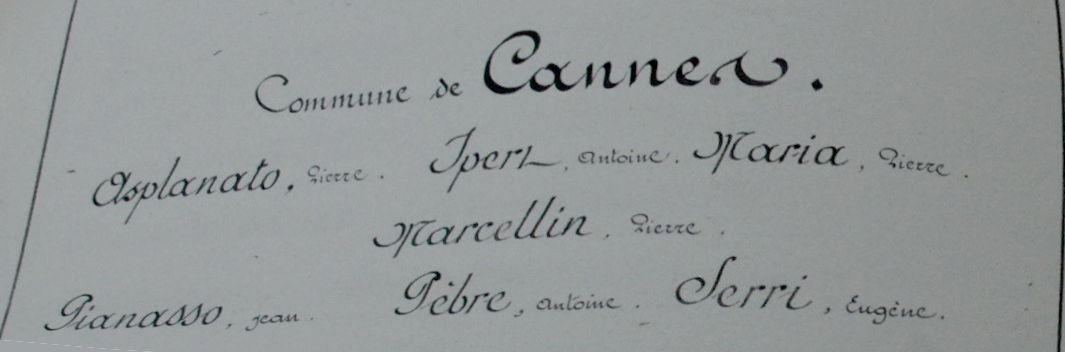 Commune de Cannes.
Asplanato, Pierre. Ipert, Antoine. Maria, Pierre.
Marcellin, Pierre.
Pianasso, Jean. Pèbre, Antoine. Serri, Eugène.